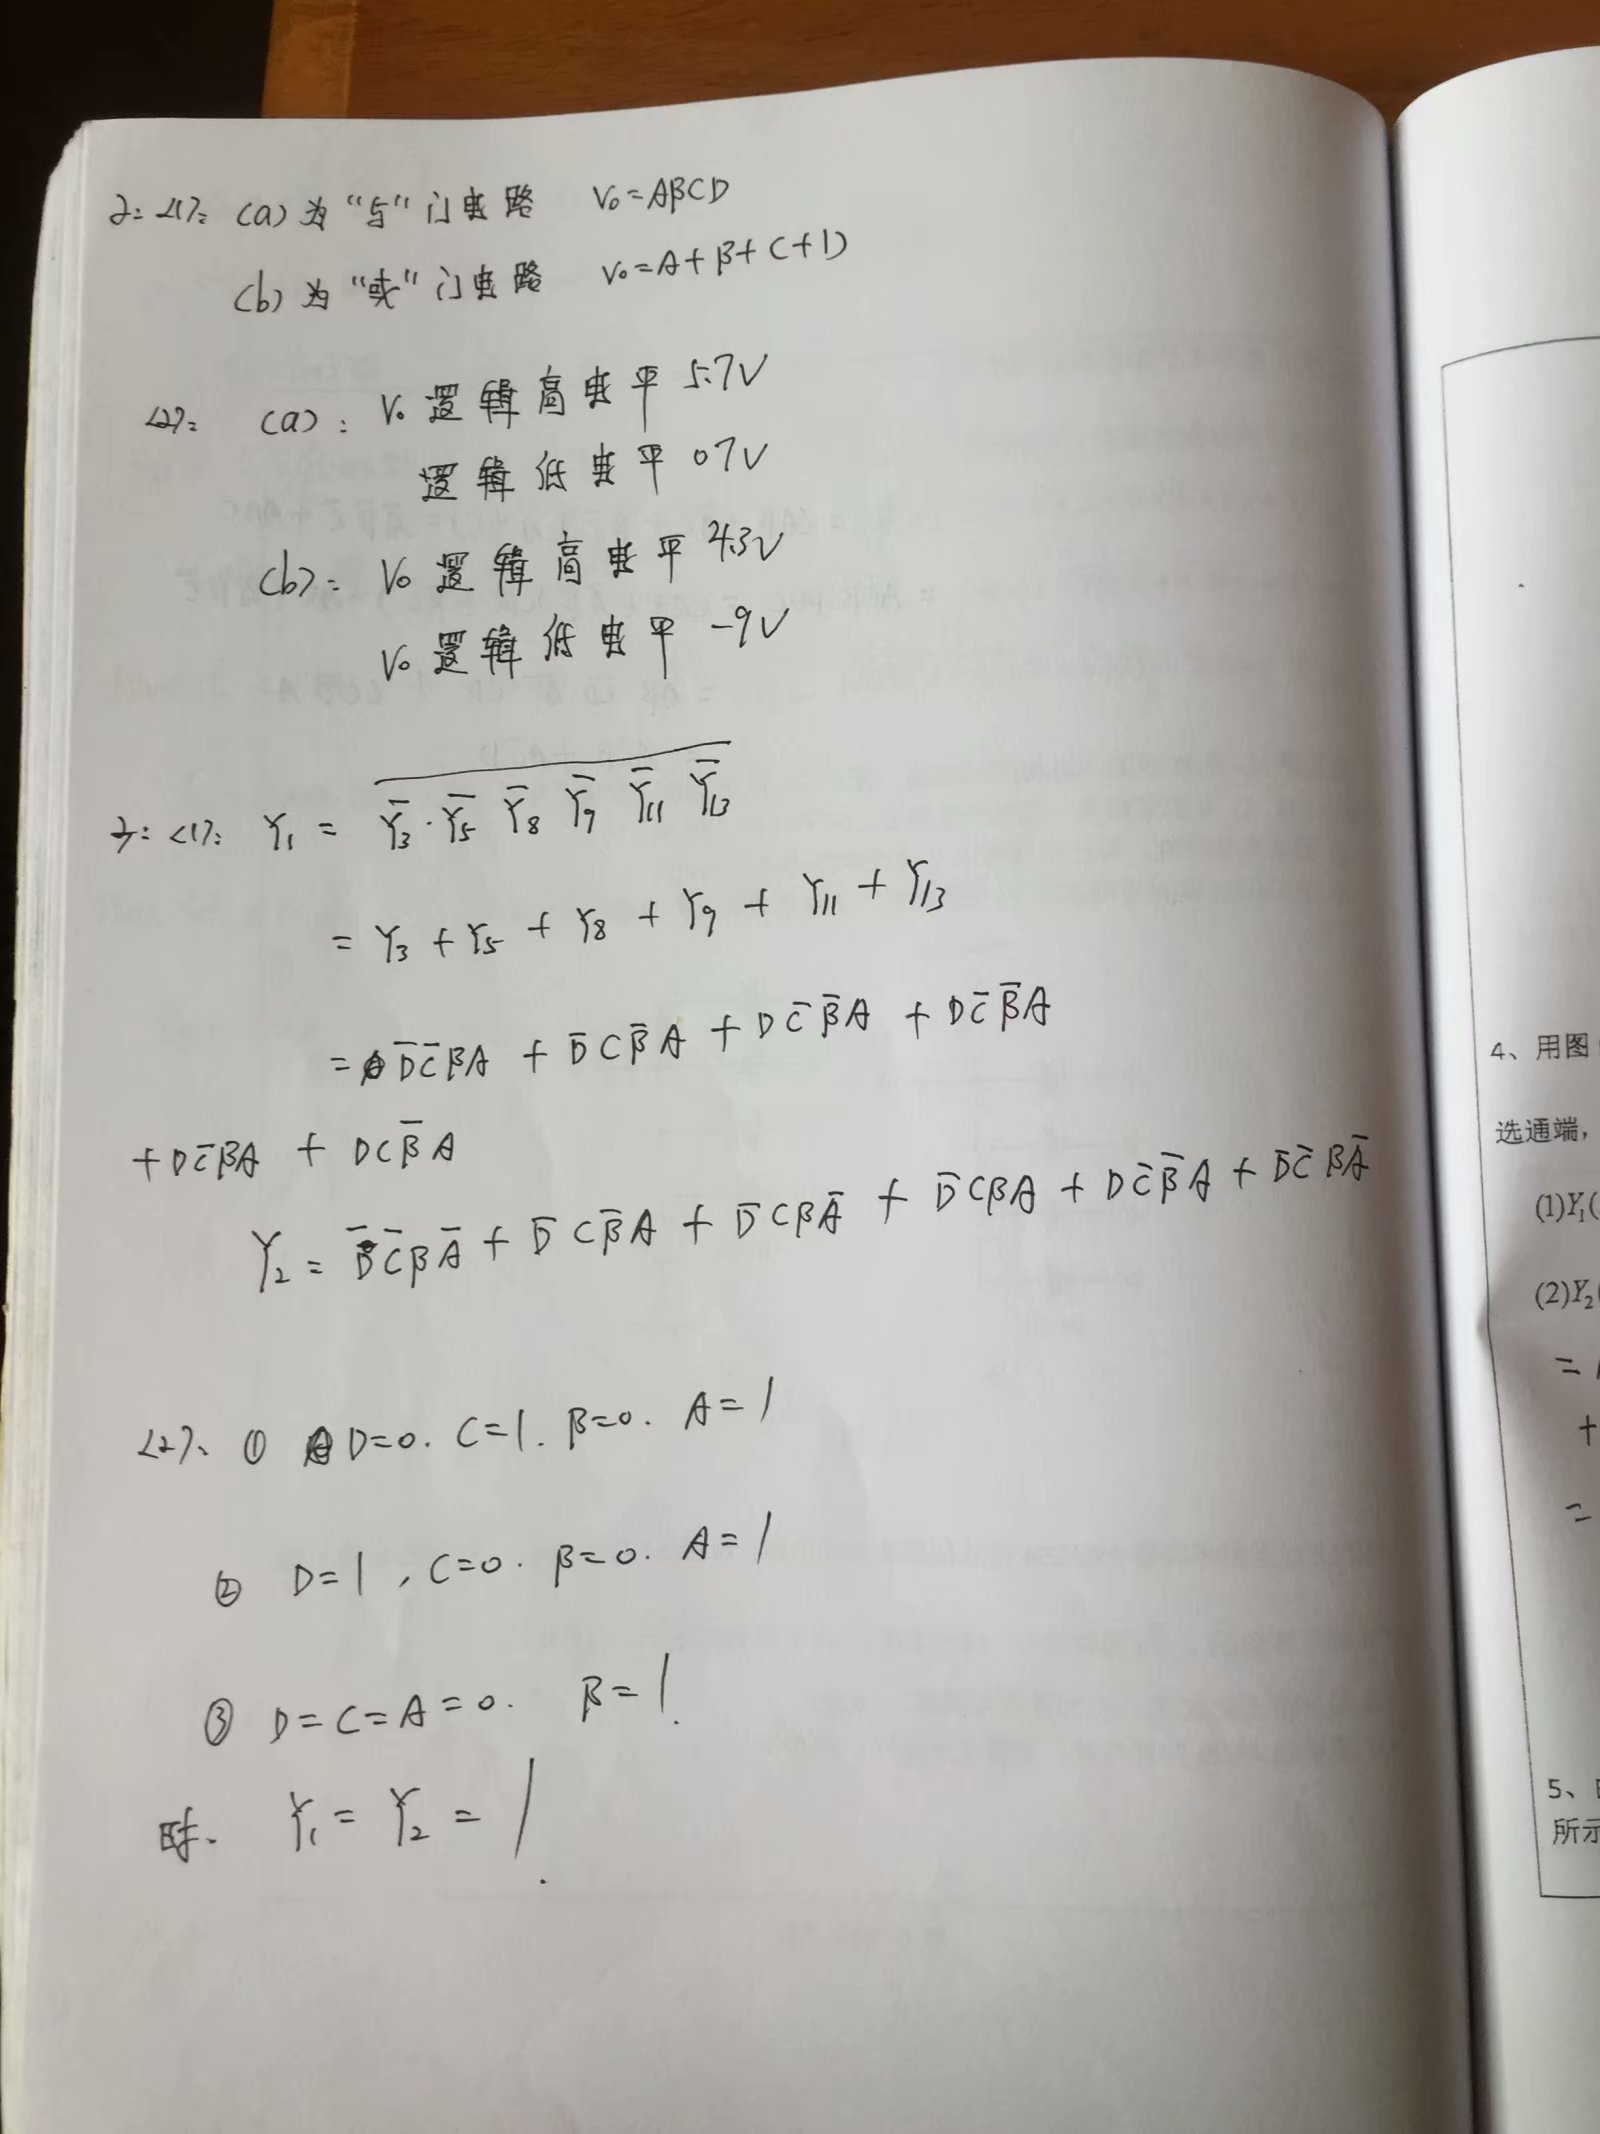 2: <1>: (a) 为 "与" 门电路 V₀=ABCD
(b) 为 "或" 门电路 V₀=A+B+C+D
<2>: (a): V₀ 逻辑高电平 5.7V
逻辑低电平 0.7V
(b): V₀ 逻辑高电平 4.3V
V₀ 逻辑低电平 -9V
3: <1>: Y₁ = \overline{Y̅₃·Y̅₅ Y̅₈ Y̅₉ Y̅₁₁ Y̅₁₃}
= Y₃ + Y₅ + Y₈ + Y₉ + Y₁₁ + Y₁₃
= D̅C̅BA + D̅CB̅A + DC̅B̅A + DC̅B̅A
+ DC̅BA + DCB̅A
Y₂ = D̅C̅BA̅ + D̅CB̅A + D̅CBA̅ + D̅CBA + DC̅B̅A + D̅C̅BA̅
<2>、 ① D=0. C=1. B=0. A=1
② D=1, C=0. B=0. A=1
③ D=C=A=0. B=1.
时. Y₁ = Y₂ = 1.
4、用图
选通端,
(1)Y₁(
(2)Y₂(
=
+
=
5、
所示